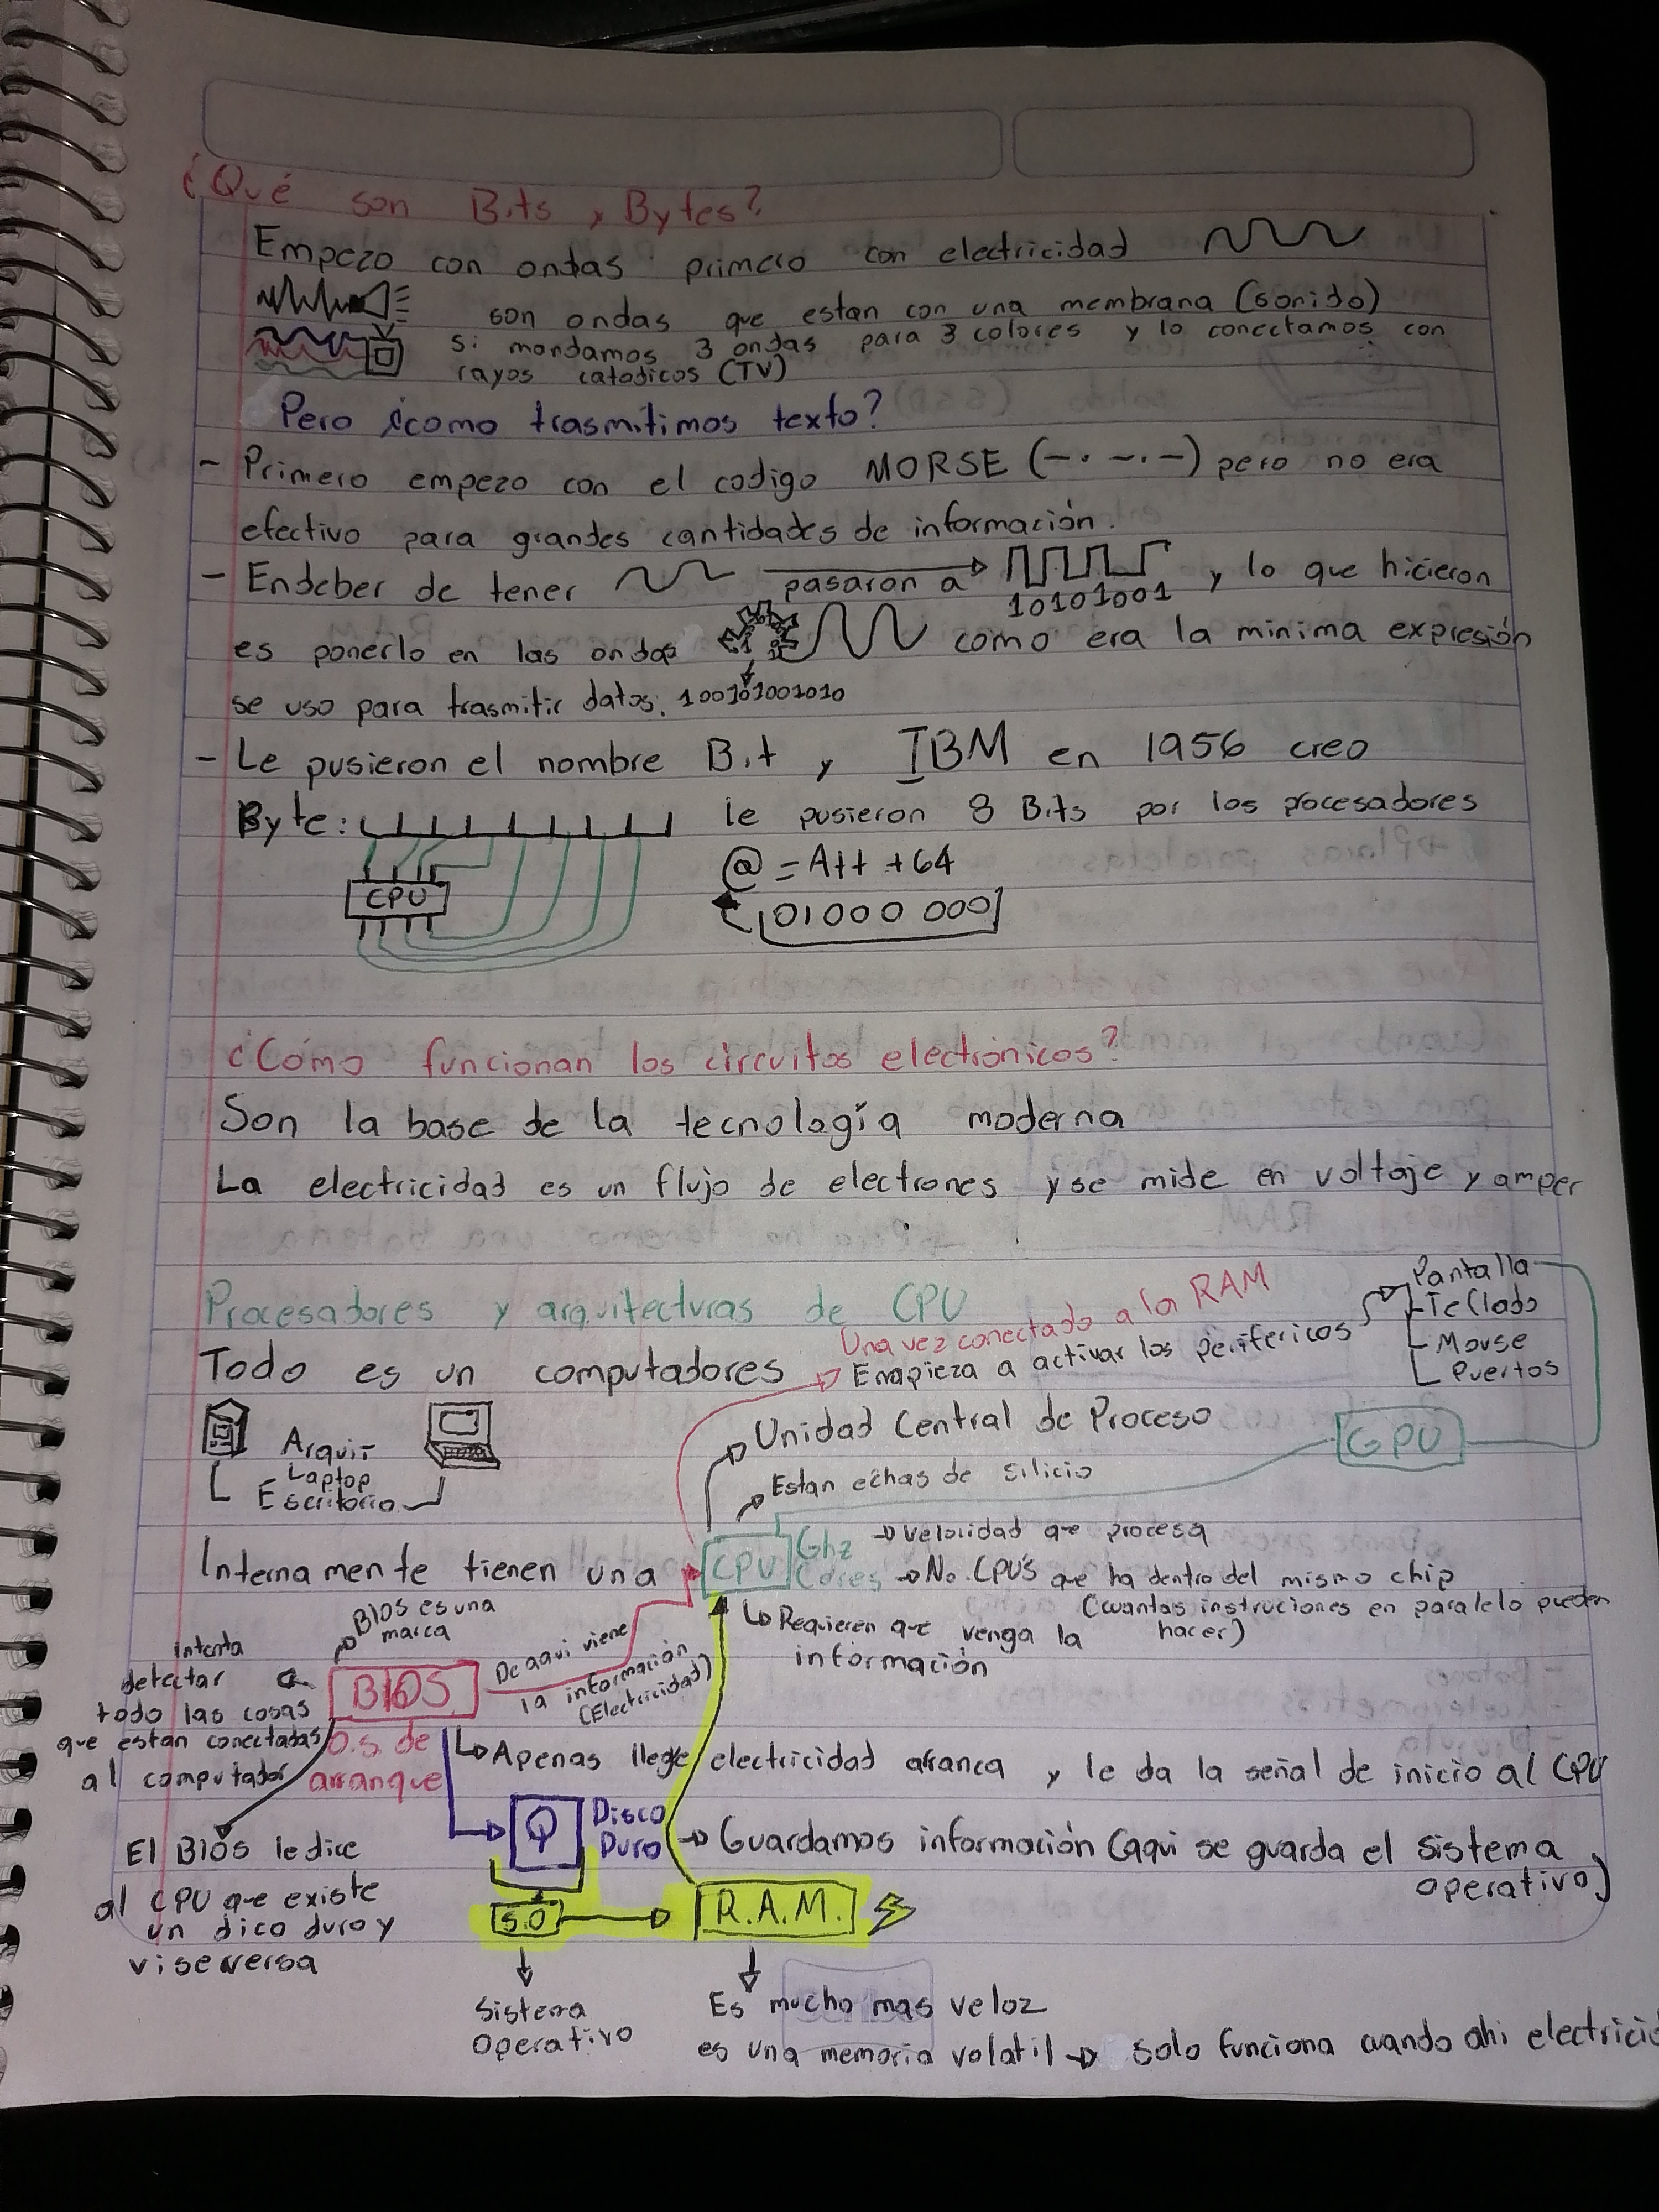 ¿Qué son Bits y Bytes?
Empezo con ondas primero con electricidad
son ondas que estan con una membrana (sonido)
si mandamos 3 ondas para 3 colores y lo conectamos con
rayos catodicos (TV)
Pero ¿como trasmitimos texto?
- Primero empezo con el codigo MORSE (-·-·-) pero no era
efectivo para grandes cantidades de información.
- Endeber de tener pasaron a y lo que hicieron
10101001
es ponerlo en las ondas como era la minima expresión
se uso para trasmitir datos. 100101001010
- Le pusieron el nombre Bit y IBM en 1956 creo
Byte: le pusieron 8 Bits por los procesadores
@ = Alt +64
CPU
01000 000
¿Cómo funcionan los circuitos electrónicos?
Son la base de la tecnología moderna
La electricidad es un flujo de electrones y se mide en voltaje y amper
Procesadores y arquitecturas de CPU
Una vez conectado a la RAM
Pantalla
Teclado
Mouse
Puertos
Todo es un computadores
Empieza a activar los perifericos
Arquit
Laptop
Escritorio
Unidad Central de Proceso
GPU
Estan echas de silicio
Internamente tienen una CPU
Ghz → Velocidad que procesa
Cores → No. CPU'S que ha dentro del mismo chip
(cuantas instruciones en paralelo pueden
hacer)
Requieren que venga la
información
BIOS es una
marca
Intenta
detectar
todo las cosas
que estan conectadas
al computador
BIOS
O.S. de
arranque
De aqui viene
la información
(Electricidad)
Apenas llege electricidad arranca y le da la señal de inicio al CPU
Disco
Duro
→ Guardamos información (aqui se guarda el sistema
operativo)
El BIOS le dice
al CPU que existe
un dico duro y
viseversa
S.O
R.A.M.
Sistema
Operativo
Es mucho mas veloz
es una memoria volatil → solo funciona cuando ahi electricid